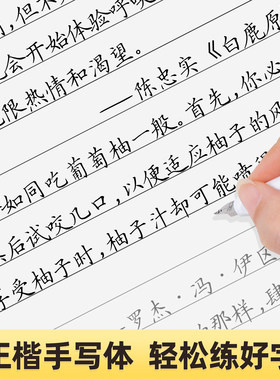 会开始体验呼
限热情和渴望。
——陈忠实《白鹿原
如同吃葡萄柚一般。首先，你必
后试咬几口，以便适应柚子的风
享受柚子时，柚子汁却可能喷
罗杰·冯·伊区
那样，肆
正楷手写体 轻松练好字